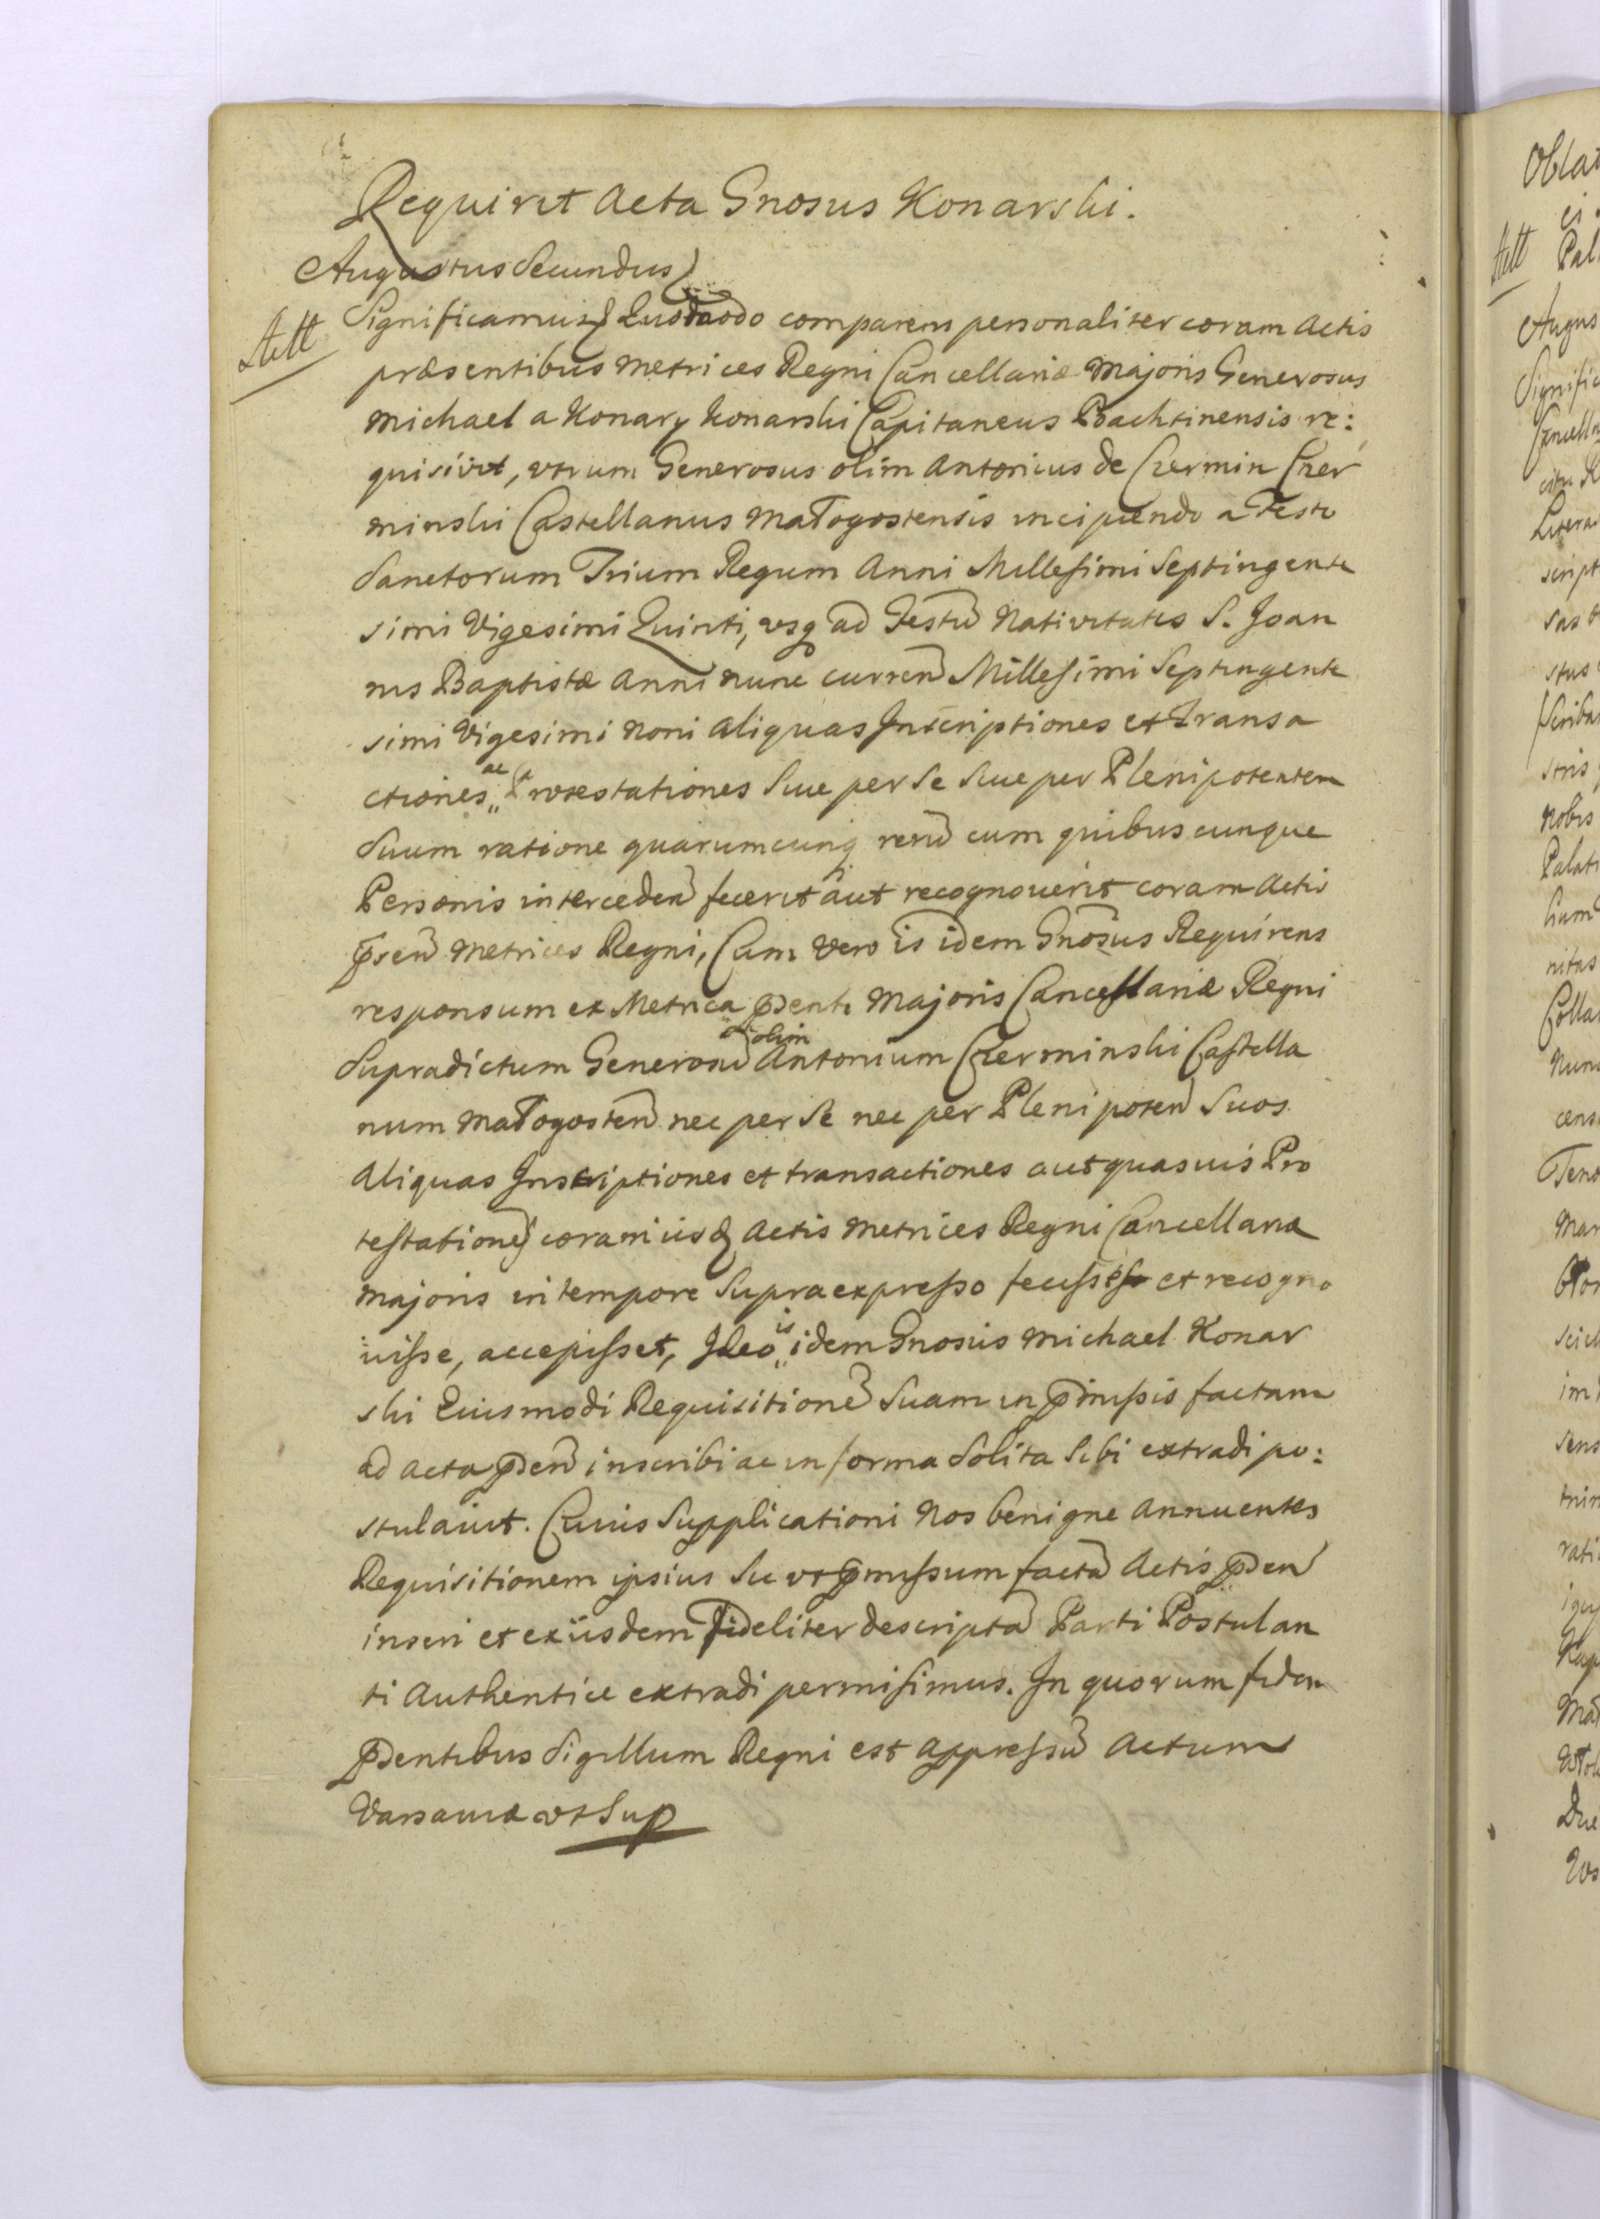 Requiret Acta Gnosus Konarski.
Augustus Secundus
Significamus Quomodo comparens personaliter coram Actis
præsentibus Metrices Regni Cancellariæ Majoris Generosus
Michael a Konary Konarski Capitaneus Bachtinensis re:
quisivit, vtrum Generosus olim Antonius de Czermin Czer
minski Castellanus Małogostensis incipiendo a Festo
Sanctorum Trium Regum Anni Millesimi Septingente
simi Vigesimi Quinti, vsq ad Festū Nativitatis S. Joan
nis Baptistæ Anni nunc curren Millesimi Septingente
simi Vigesimi Noni Aliquas Inscriptiones et Transa
ctiones ac Protestationes Siue per Se Siue per Plenipotentem
Suum ratione quarumcunq rerū cum quibuscunque
Personis interceden fecerit aut recognouerit coram Actis
pnsen Metrices Regni, Cum Vero is idem Gnosus Requirens
responsum ex Metrica pnti Majoris Cancellariæ Regni
Supradictum Generosū olim Antonium Czerminski Castella
num Małogosten nec per Se nec per Plenipoten Suos
Aliquas Inscriptiones et transactiones aut quasuis Pro
testationes coram iisd Actis Metrices Regni Cancellariæ
Majoris in tempore Supraexpresso fecisse et recogno
uisse, accepisset, Ideo is idem Gnosus Michael Konar
ski Eiusmodi Requisitionē Suam in pmissis factam
ad Acta pnsen inscribi ac in forma Solita Sibi extradi po:
stulauit. Cuius Supplicationi Nos benigne Annuentes
Requisitionem ipsius Sic vt pmissum factā Actis pnsen
inseri et ex iisdem fideliter descriptā Parti Postulan
ti Authentice extradi permisimus. In quorum fidem
pntibus Sigillum Regni est Appressū Actum
Varsaviæ vt Sup